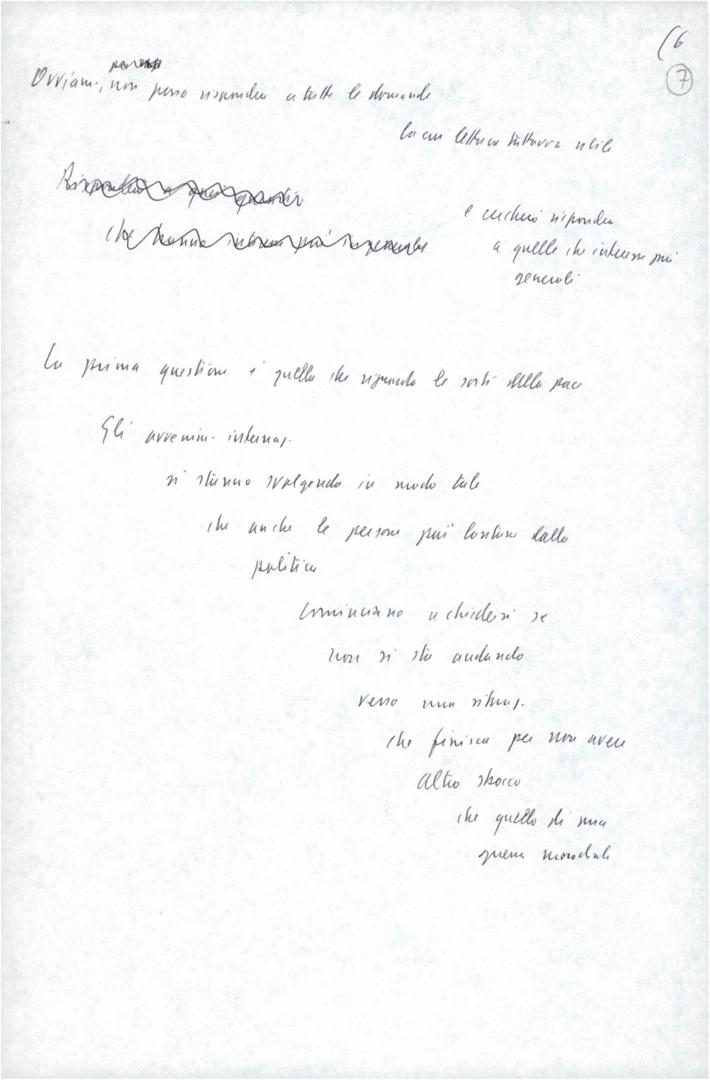 (6
7
Ovviam., non posso rispondere a tutte le domande
la cui lettura tuttavia utile
Rispondere a quei quesiti
che hanno interesse più generale
e cercherò rispondere
a quelle che interesse più
generali
La prima questione è quella che riguarda le sorti della pace
Gli avvenim. internaz.
si stanno svolgendo in modo tale
che anche le persone più lontane dalla
politica
cominciano a chiedersi se
non si sta andando
verso una situaz.
che finisca per non avere
altro sbocco
che quello di una
guerra mondiale